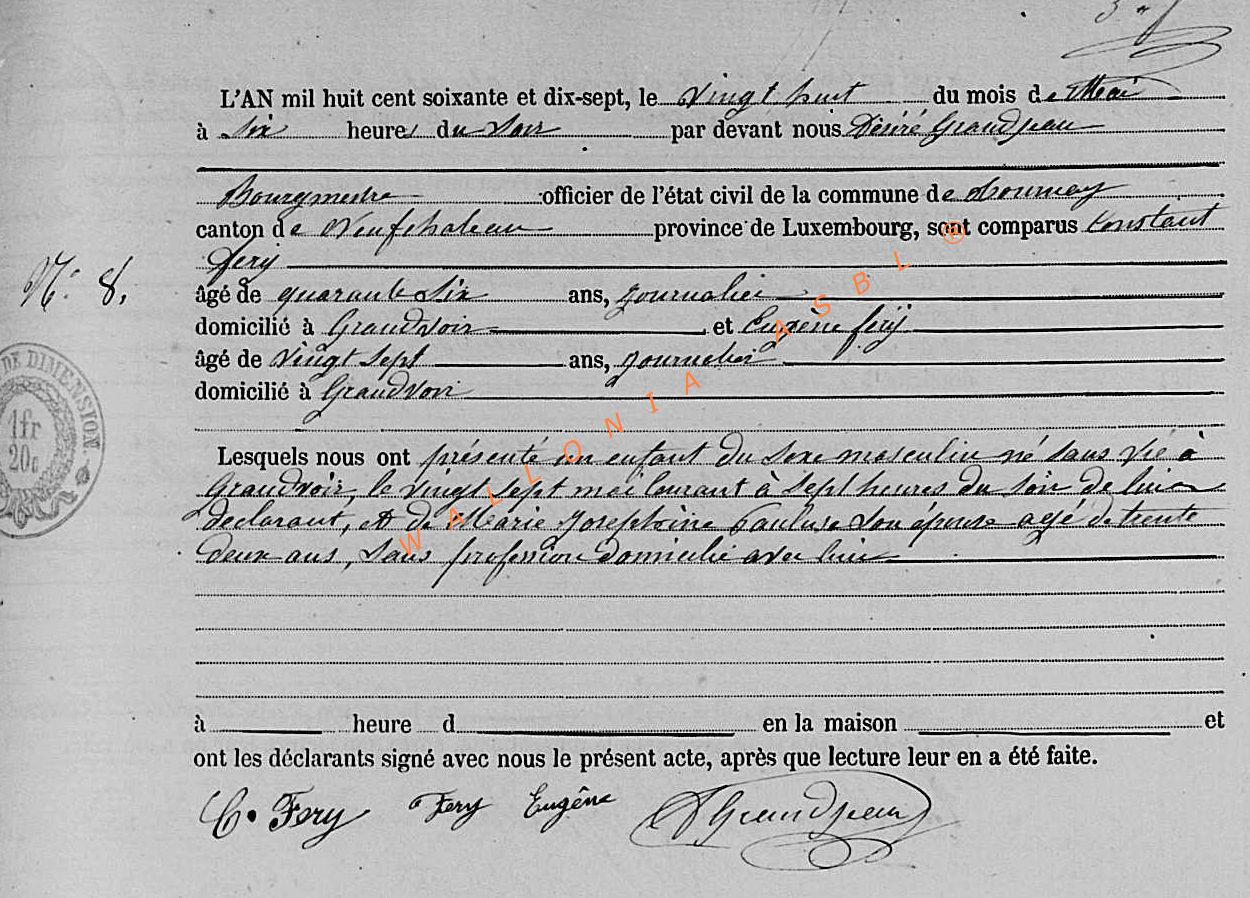 L'AN mil huit cent soixante et dix-sept, le vingt huit du mois de Mai
à six heures du soir par devant nous Désiré Grandjean
Bourgmestre officier de l'état civil de la commune de Tournay
canton de Neufchateau province de Luxembourg, sont comparus Constant
Fery
N° 8.
âgé de quarante six ans, journalier
domicilié à Grandvoir et Eugène fery
âgé de vingt sept ans, journalier
domicilié à Grandvoir
DE DIMENSION.
1fr
20c
Lesquels nous ont présenté un enfant du sexe masculin né sans vie à
Grandvoir, le vingt sept mai courant à sept heures du soir de lui
declarant, et de Marie Josephine Pauluse son épouse agé de trente
deux ans, sans profession domicilié avec lui
à heure d en la maison et
ont les déclarants signé avec nous le présent acte, après que lecture leur en a été faite.
C. Fery Fery Eugêne DGrandjean
WALLONIA ASBL ®